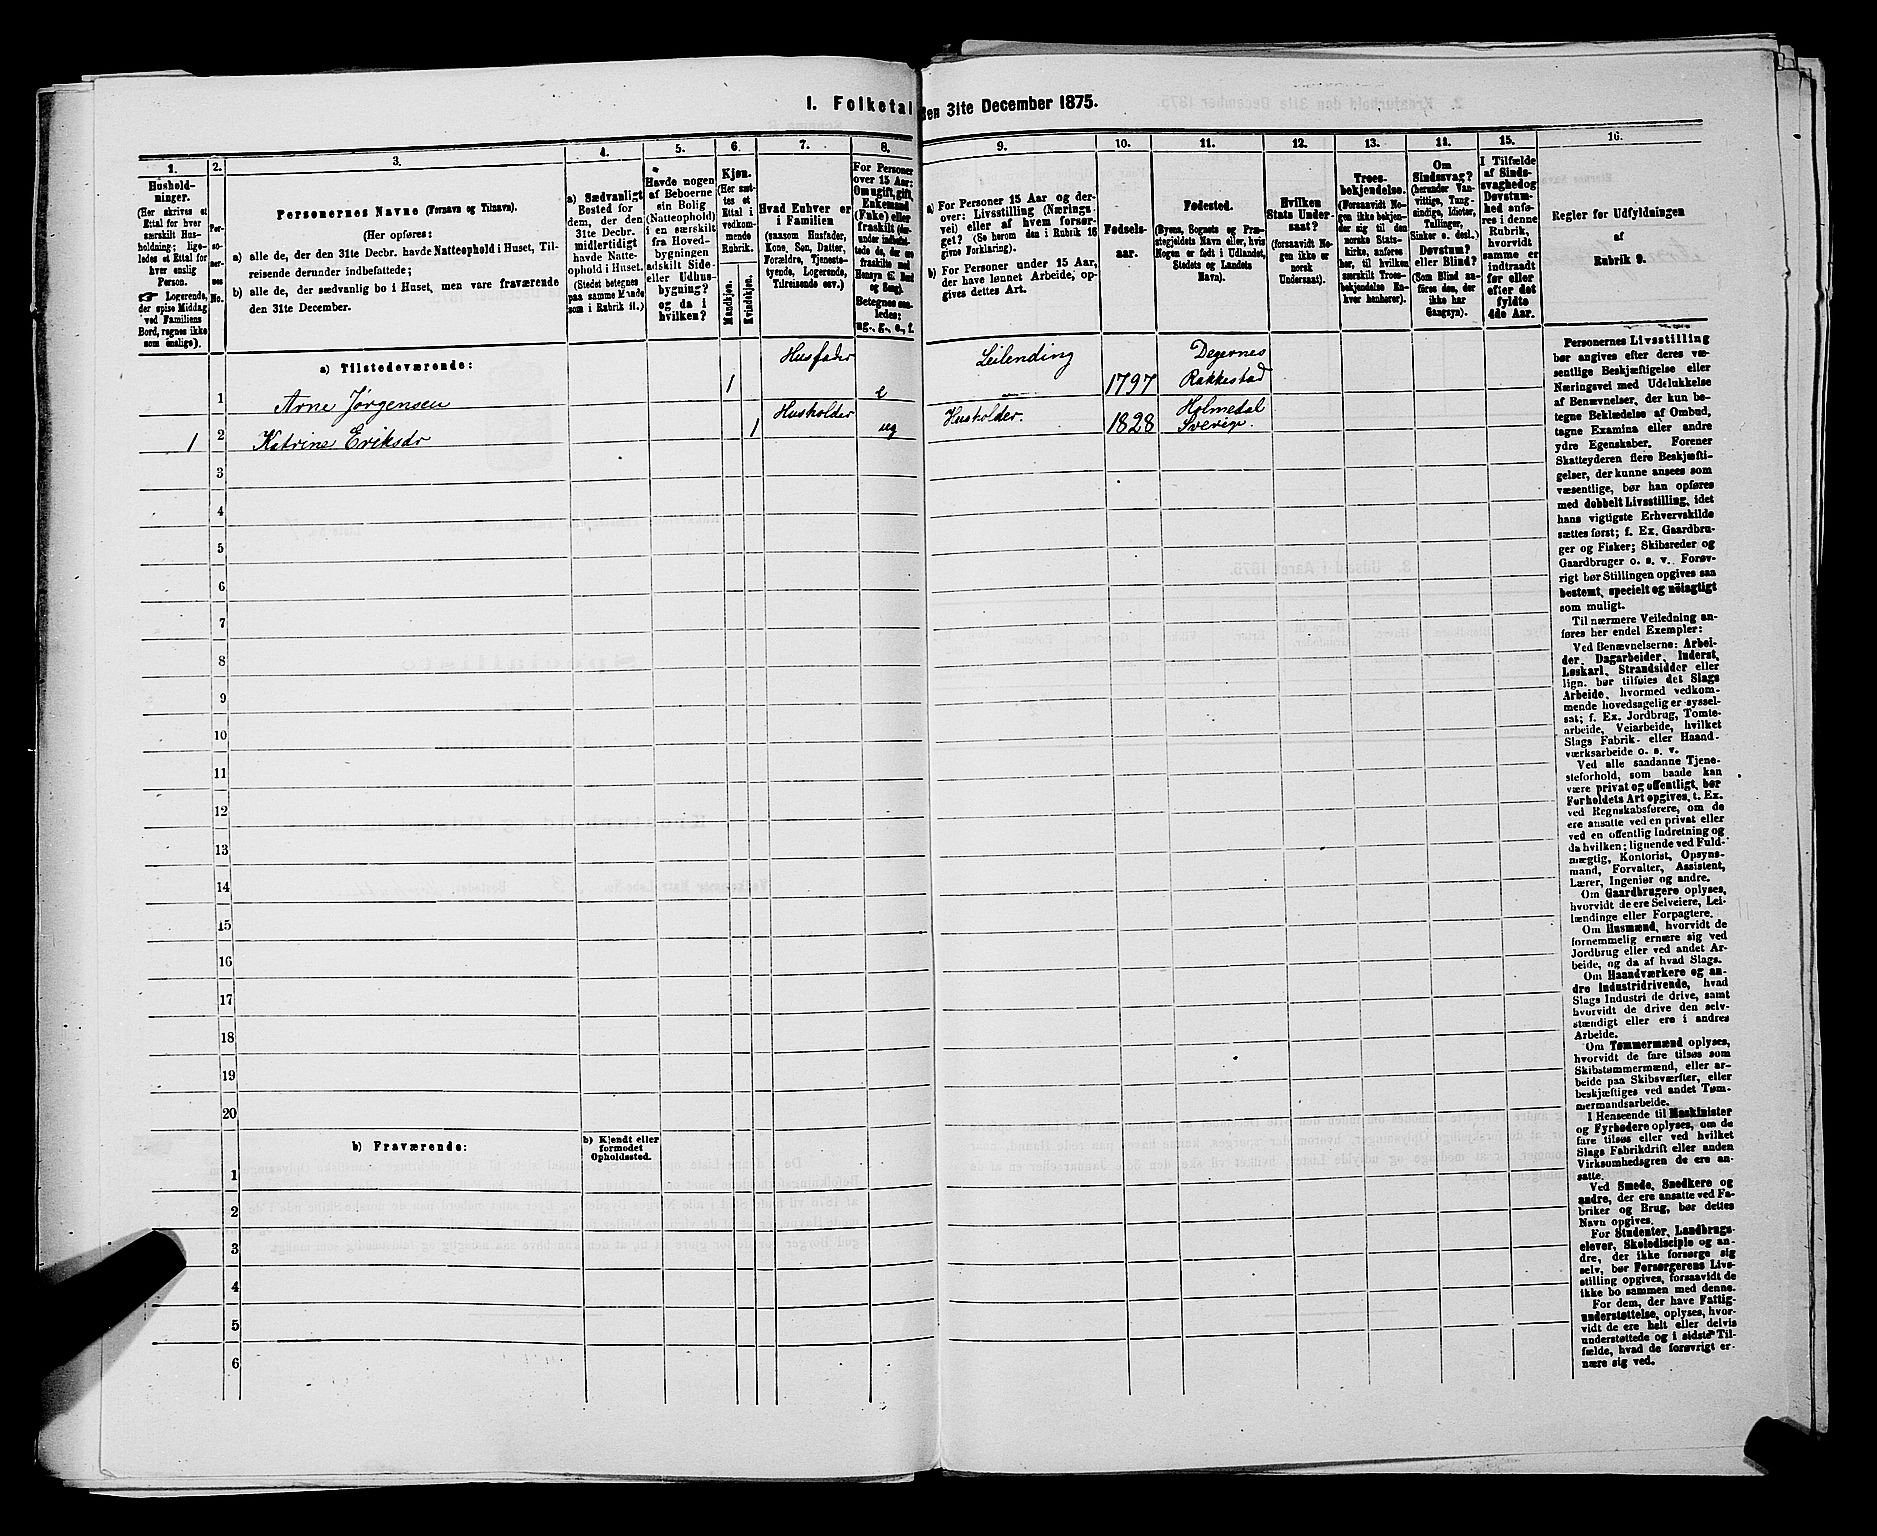 I. Folketal den 31te December 1875.
1.
2.
3.
4.
5.
6.
7.
8.
9.
10.
11.
12.
13.
14.
15.
16.
Hushold-
ninger.
(Her skrives et
Ettal for hver
særskilt Hus-
holdning; lige-
ledes et Ettal for
hver enslig
Person.
☞ Logerende,
der spise Middag
ved Familiens
Bord, regnes ikke
som enslige).
Per-
so-
ner-
nes
No.
Personernes Navne (Fornavn og Tilnavn).
(Her opføres:
a) alle de, der den 31te Decbr. havde Natteophold i Huset, Til-
reisende derunder indbefattede;
b) alle de, der sædvanlig bo i Huset, men vare fraværende
den 31te December.
a) Sædvanligt
Bosted for
dem, der den
31te Decbr.
midlertidigt
havde Natte-
ophold i Huset.
(Stedet betegnes
paa samme Maade
som i Rubrik 11.)
Havde nogen
af Beboerne
sin Bolig
(Natteophold)
i en særskilt
fra Hoved-
bygningen
adskilt Side-
eller Udhus-
bygning?
og da i
hvilken?
Kjøn.
(Her sæt-
tes et
Ettal i
vedkom-
mende
Rubrik.
Mandkjøn.
Kvindekjøn.
Hvad Enhver er
i Familien
(saasom Husfader,
Kone, Søn, Datter,
Forældre, Tjeneste-
tyende, Logerende,
Tilreisende osv.)
For Personer
over 15 Aar:
Om ugift, gift,
Enkemand
(Enke) eller
fraskilt (der-
under indbefat-
tede de, der ere
fraskilte med
Hensyn til Bord
og Seng).
Betegnes saa-
ledes:
ug., g., e., f.
a) For Personer 15 Aar og der-
over: Livsstilling (Nærings-
vei) eller af hvem forsør-
get? (Se herom den i Rubrik 16
givne Forklaring).
b) For Personer under 15 Aar,
der have lønnet Arbeide, op-
gives dettes Art.
Fødsels-
aar.
Fødested.
(Byens, Sognets og Præ-
stegjeldets Navn eller, hvis
Nogen er født i Udlandet,
Stedets og Landets
Navn).
Hvilken
Stats Under-
saat?
(forsaavidt No-
gen ikke er
norsk
Undersaat).
Troes-
bekjendelse.
(Forsaavidt No-
gen ikke bekjen-
der sig til den
norske Stats-
kirke, anføres
her, til hvilken
særskilt Troes-
bekjendelse En-
hver henhører).
Om
Sindssvag?
(herunder Van-
vittige, Tung-
sindige, Idioter,
Tullinger,
Sinker o. desl.)
Døvstum?
eller Blind?
(Som Blind an-
føres den, der
ikke har
Gangsyn).
I Tilfælde
af Sinds-
svaghed og
Døvstum-
hed anfø-
res i denne
Rubrik,
hvorvidt
samme er
indtraadt
før eller
efter det
fyldte
4de Aar.
Regler for Udfyldningen
af
Rubrik 9.
a) Tilstedeværende:
1 Arne Jørgensen 1 Husfader e Leilending 1797 Degernes
Rakkestad
1 2 Katrine Eriksdr 1 Husholder ug Husholder. 1828 Holmedal
Sverige.
3
4
5
6
7
8
9
10
11
12
13
14
15
16
17
18
19
20
b) Fraværende:
b) Kjendt eller
formodet
Opholdssted.
1
2
3
4
5
6
Personernes Livsstilling
bør angives efter deres væ-
sentlige Beskjæftigelse eller
Næringsvei med Udelukkelse
af Benævnelser, der kun be-
tegne Beklædelse af Ombud,
tagne Examina eller andre
ydre Egenskaber. Forener
Skatteyderen flere Beskjæfti-
gelser, der kunne ansees som
væsentlige, bør han opføres
med dobbelt Livsstilling, idet
hans vigtigste Erhvervskilde
sættes først; f. Ex. Gaardbru-
ger og Fisker; Skibsreder og
Gaardbruger o. s. v. Forøv-
rigt bør Stillingen opgives saa
bestemt, specielt og nöiagtigt
som muligt.
Til nærmere Veiledning an-
føres her endel Exempler:
Ved Benævnelserne: Arbei-
der, Dagarbeider, Inderst,
Løskarl, Strandsidder eller
lign. bør tilføies det Slags
Arbeide, hvormed vedkom-
mende hovedsagelig er syssel-
sat; f. Ex. Jordbrug, Tomte-
arbeide, Veiarbeide, hvilket
Slags Fabrik- eller Haand-
værksarbeide o. s. v.
Ved alle saadanne Tjene-
steforhold, som baade kan
være privat og offentligt, bør
Forholdets Art opgives, t. Ex.
ved Regnskabsførere, om de
ere ansatte ved en privat eller
ved en offentlig Indretning og
da hvilken; lignende ved Fuld-
mægtig, Kontorist, Opsyns-
mand, Forvalter, Assistent,
Lærer, Ingeniør og andre.
Om Gaardbrugere oplyses,
hvorvidt de ere Selveiere, Lei-
lændinge eller Forpagtere.
Om Husmænd, hvorvidt de
fornemmelig ernære sig ved
Jordbrug eller ved andet Ar-
beide, og da af hvad Slags.
Om Haandværkere og an-
dre Industridrivende, hvad
Slags Industri de drive, samt
hvorvidt de drive den selv-
stændigt eller ere i andres
Arbeide.
Om Tømmermænd oplyses,
hvorvidt de fare tilsøs som
Skibstømmermænd, eller ar-
beide paa Skibsværfter, eller
beskjæftiges ved andet Tøm-
mermandsarbeide.
I Henseende til Maskinister
og Fyrbødere oplyses, om de
fare tilsøs eller ved hvilket
Slags Fabrikdrift eller anden
Virksomhedsgren de ere an-
satte.
Ved Smede, Snedkere og
andre, der ere ansatte ved Fa-
briker og Brug, bør dettes
Navn opgives.
For Studenter, Landbrugs-
elever, Skoledisciple og an-
dre, der ikke forsørge sig
selv, bør Forsørgerens Livs-
stilling opgives, forsaavidt de
ikke bo sammen med denne.
For dem, der have Fattig-
understøttelse, oplyses, hvor-
vidt de ere helt eller delvis
understøttede og i sidste Til-
fælde, hvad de forøvrigt er-
nære sig ved.